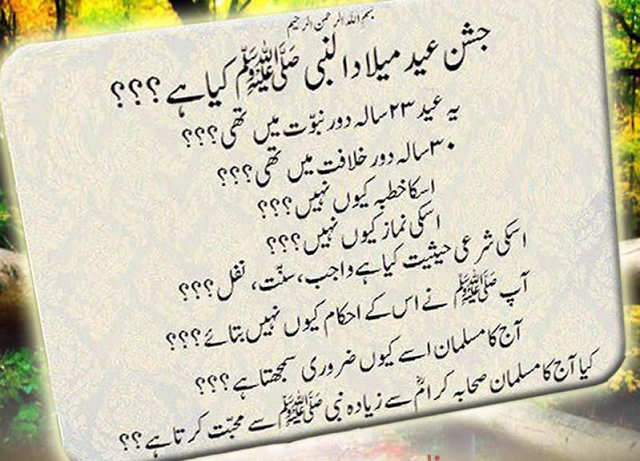 بسم اللہ الرحمن الرحیم
جشن عید میلاد النبی ﷺ کیا ہے ؟؟؟
یہ عید ۲۳ سالہ دور نبوّت میں تھی؟؟؟
۳۰ سالہ دور خلافت میں تھی؟؟؟
اسکا خطبہ کیوں نہیں؟؟؟
اسکی نماز کیوں نہیں؟؟؟
اسکی شرعی حیثیت کیا ہے واجب، سنّت، نفل؟؟؟
آپ ﷺ نے اس کے احکام کیوں نہیں بتائے؟؟؟
آج کا مسلمان اسے کیوں ضروری سمجھتا ہے؟؟؟
کیا آج کا مسلمان صحابہ کرامؓ سے زیادہ نبی ﷺ سے محبّت کرتا ہے؟؟